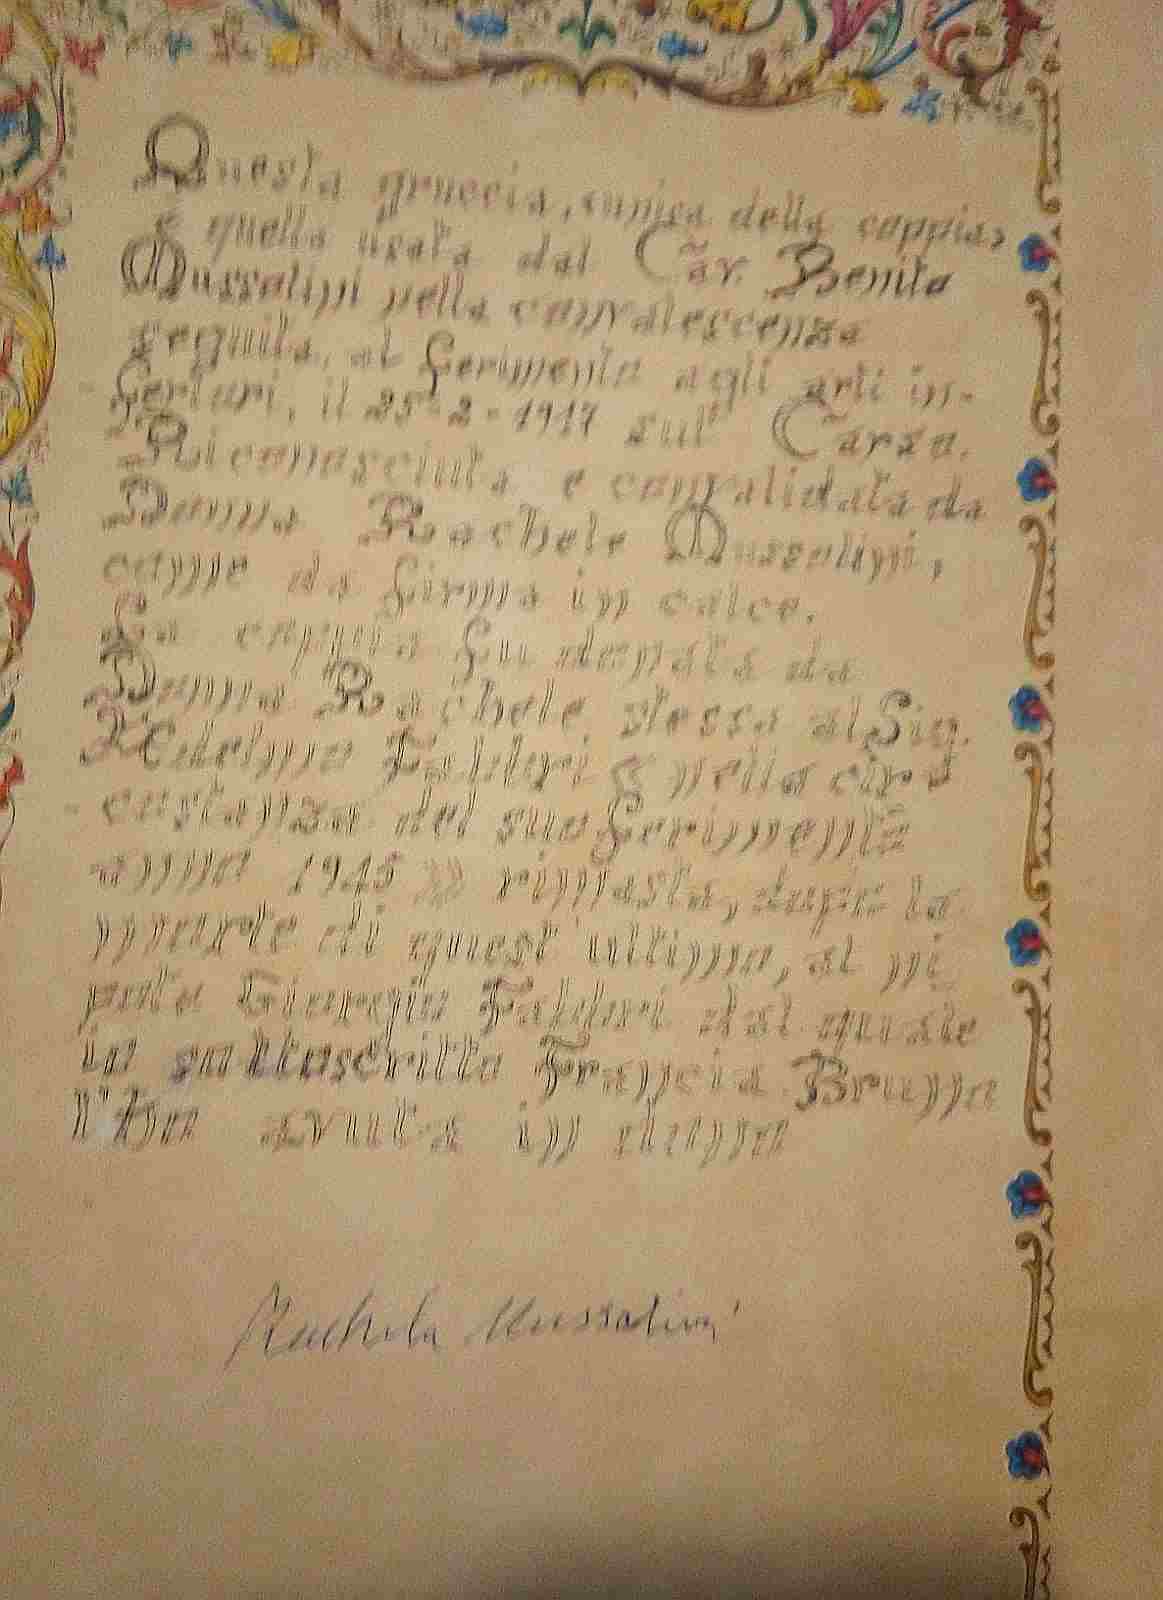 Questa gruccia, unica della coppia,
è quella usata dal Cav. Benito
Mussolini nella convalescenza
seguita, al ferimento agli arti in-
feriori, il 25-2-1917 sul Carso.
Riconosciuta e convalidata da
Donna Rachele Mussolini,
come da firma in calce.
La coppia fu donata da
Donna Rachele stessa al Sig.
Adelmo Fabbri e nella cir
costanza del suo ferimento
anno 1945 rimasta, dopo la
morte di quest'ultimo, al ni
pote Giorgio Fabbri dal quale
io sottoscritto Francia Bruno
l'ho avuta in dono
Rachele Mussolini